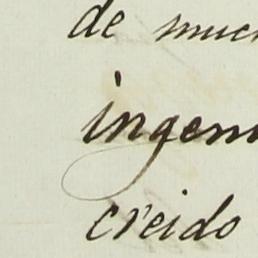 de muc
ingen
creido